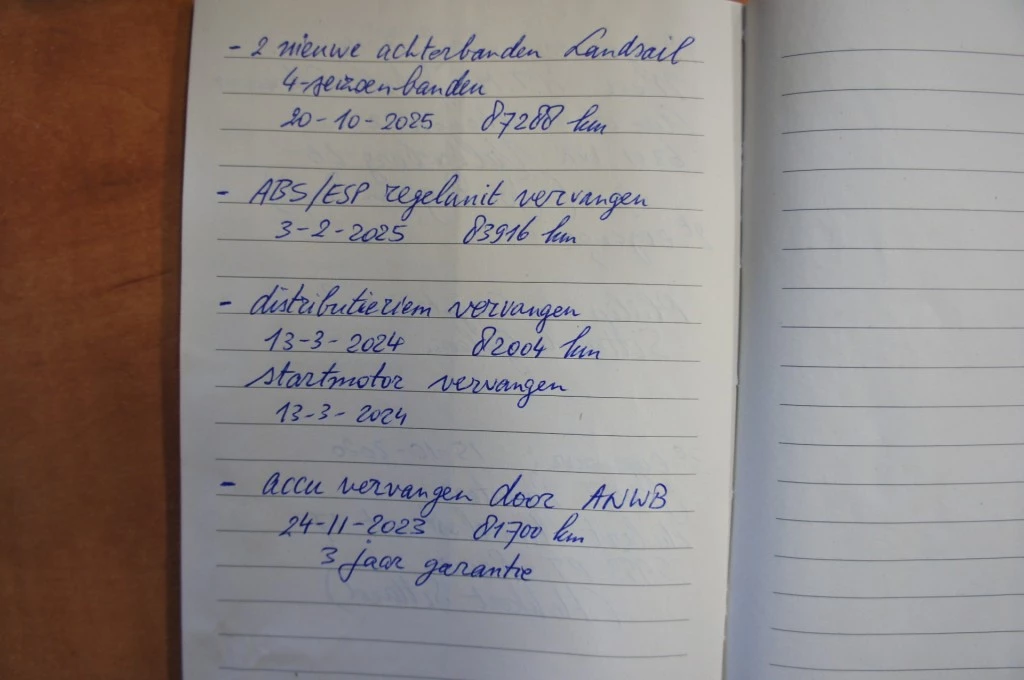 - 2 nieuwe achterbanden Landsail
4-seizoenbanden
20-10-2025 87288 km
- ABS/ESP regelunit vervangen
3-2-2025 83916 km
- distributieriem vervangen
13-3-2024 82004 km
startmotor vervangen
13-3-2024
- accu vervangen door ANWB
24-11-2023 81700 km
3 jaar garantie